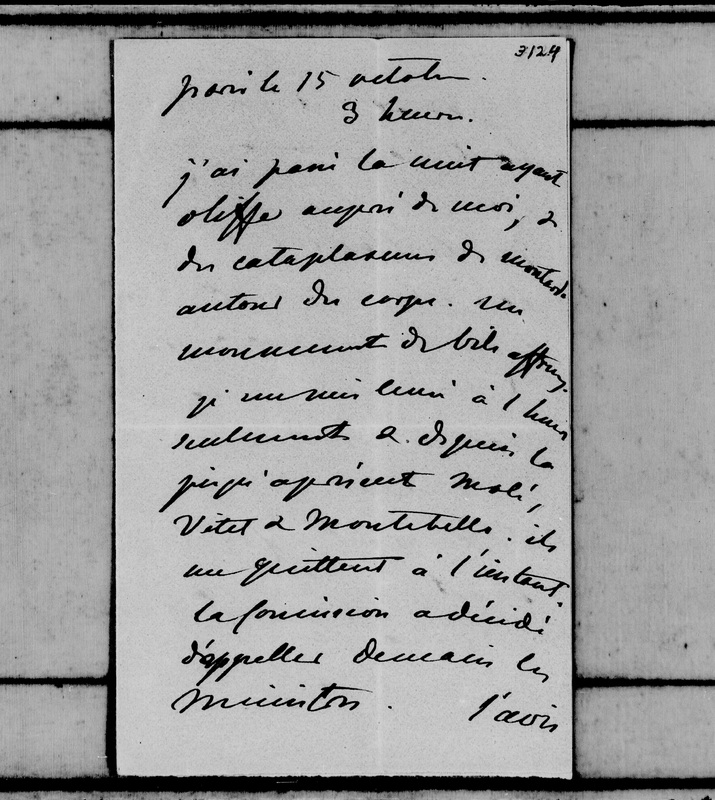 3124
paris le 15 octobre.
3 heures.
j'ai passé la nuit ayant
oliffe auprès de moi, &
des cataplasmes de moutarde
autour du corps. un
mouvement de bile affreux.
je me suis levée à 1 heure
seulement & depuis la
jusqu'à présent Molé,
Vitet & Montebello. ils
me quittent à l'instant.
la Commission a décidé
d'appeller demain les
ministres. l'avis